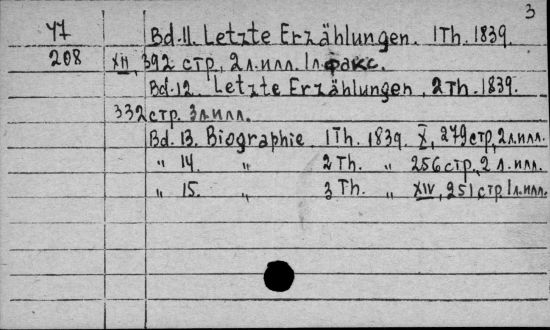 3
47 Bd. 11. Letzte Erzählungen. 1 Th. 1839.
208 XII, 392 стр., 2 л. илл. 1 л. факс.
Bd. 12. Letzte Erzählungen, 2 Th. 1839.
332 стр. 3 л. илл.
Bd. 13. Biographie. 1 Th. 1839. X, 279 стр., 2 л. илл.
„ 14. „ 2 Th. „ 256 стр., 2 л. илл.
„ 15. „ 3 Th. „ XIV, 251 стр. 1 л. илл.